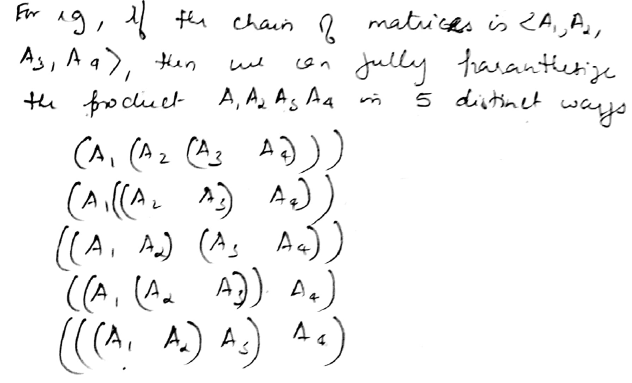 For eg, if the chain of matrices is <A₁, A₂,
A₃, A₄>, then we can fully paranthesize
the product A₁ A₂ A₃ A₄ in 5 distinct ways
(A₁ (A₂ (A₃ A₄)))
(A₁((A₂ A₃) A₄))
((A₁ A₂) (A₃ A₄))
((A₁ (A₂ A₃)) A₄)
(((A₁ A₂) A₃) A₄)